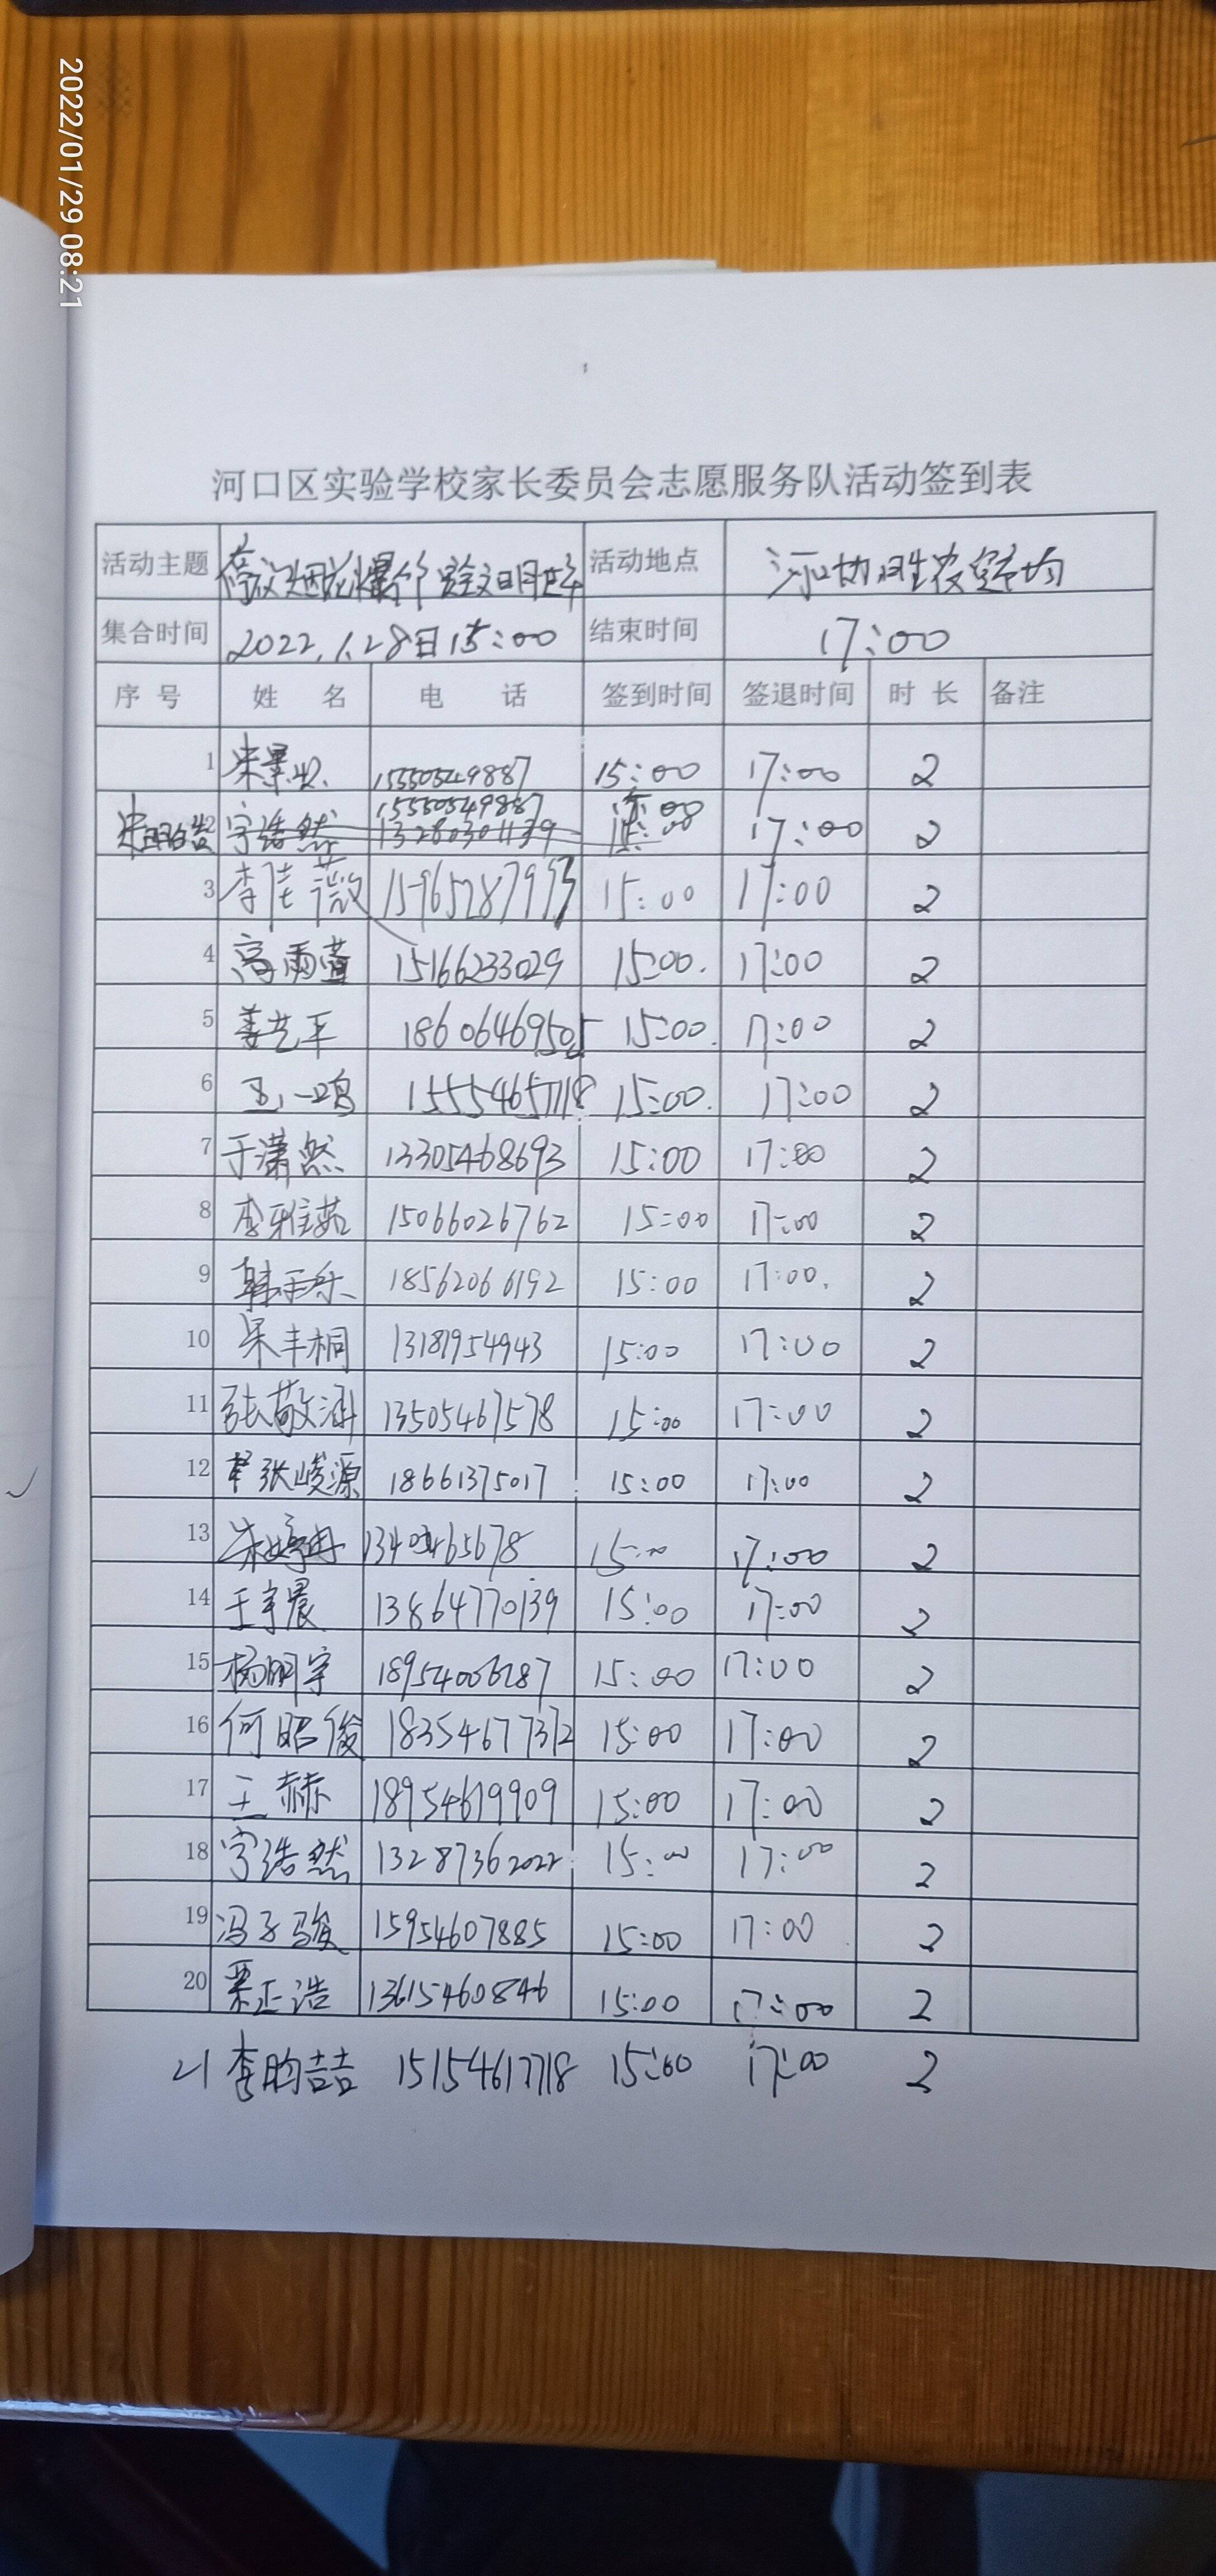 2022/01/29 08:21
河口区实验学校家长委员会志愿服务队活动签到表
活动主题 倡议烟花爆竹 文明 活动地点
集合时间 2022.1.28日15:00 结束时间 17:00
序号 姓名 电话 签到时间 签退时间 时长 备注
1 15550549887 15:00 17:00 2
15550549887 15:00
2 宁浩然 13280301139 15:00 17:00 2
3 李佳薇 15965287993 15:00 17:00 2
4 高雨萱 15166233029 15:00. 17:00 2
5 姜艺平 18606469505 15:00. 17:00 2
6 王一鸣 15554651118 15:00. 17:00 2
7 于潇然 13305468693 15:00 17:00 2
8 李雅茹 15066026762 15:00 17:00 2
9 韩 乐 18562066192 15:00 17:00. 2
10 丰桐 13181954943 15:00 17:00 2
11 张敬涵 13505467578 15:00 17:00 2
12 张峻源 18661375017 15:00 17:00 2
13 15:00 17:00 2
14 王宇晨 13864770139 15:00 17:00 2
15 杨明宇 18954006287 15:00 17:00 2
16 何昭俊 18354677372 15:00 17:00 2
17 王赫 18954619909 15:00 17:00 2
18 宁浩然 13287362022 15:00 17:00 2
19 冯子骏 15954607885 15:00 17:00 2
20 正浩 13615460846 15:00 17:00 2
21 李昀喆 15154617718 15:00 17:00 2